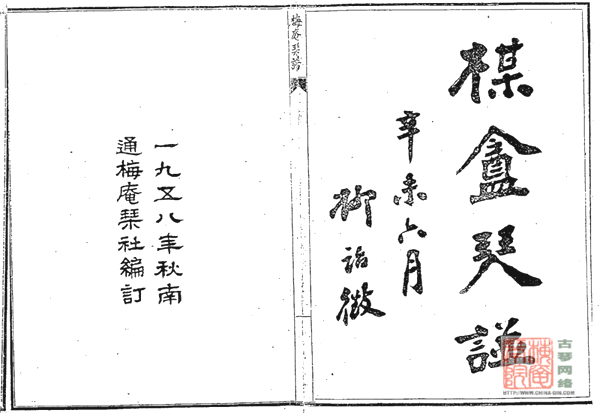 楳盦珡譜
辛未六月
柳詒徵
梅庵琴譜
一九五八年秋南
通梅庵琹社編訂
古琴网络
HTTP://WWW.CHINA-QIN.COM